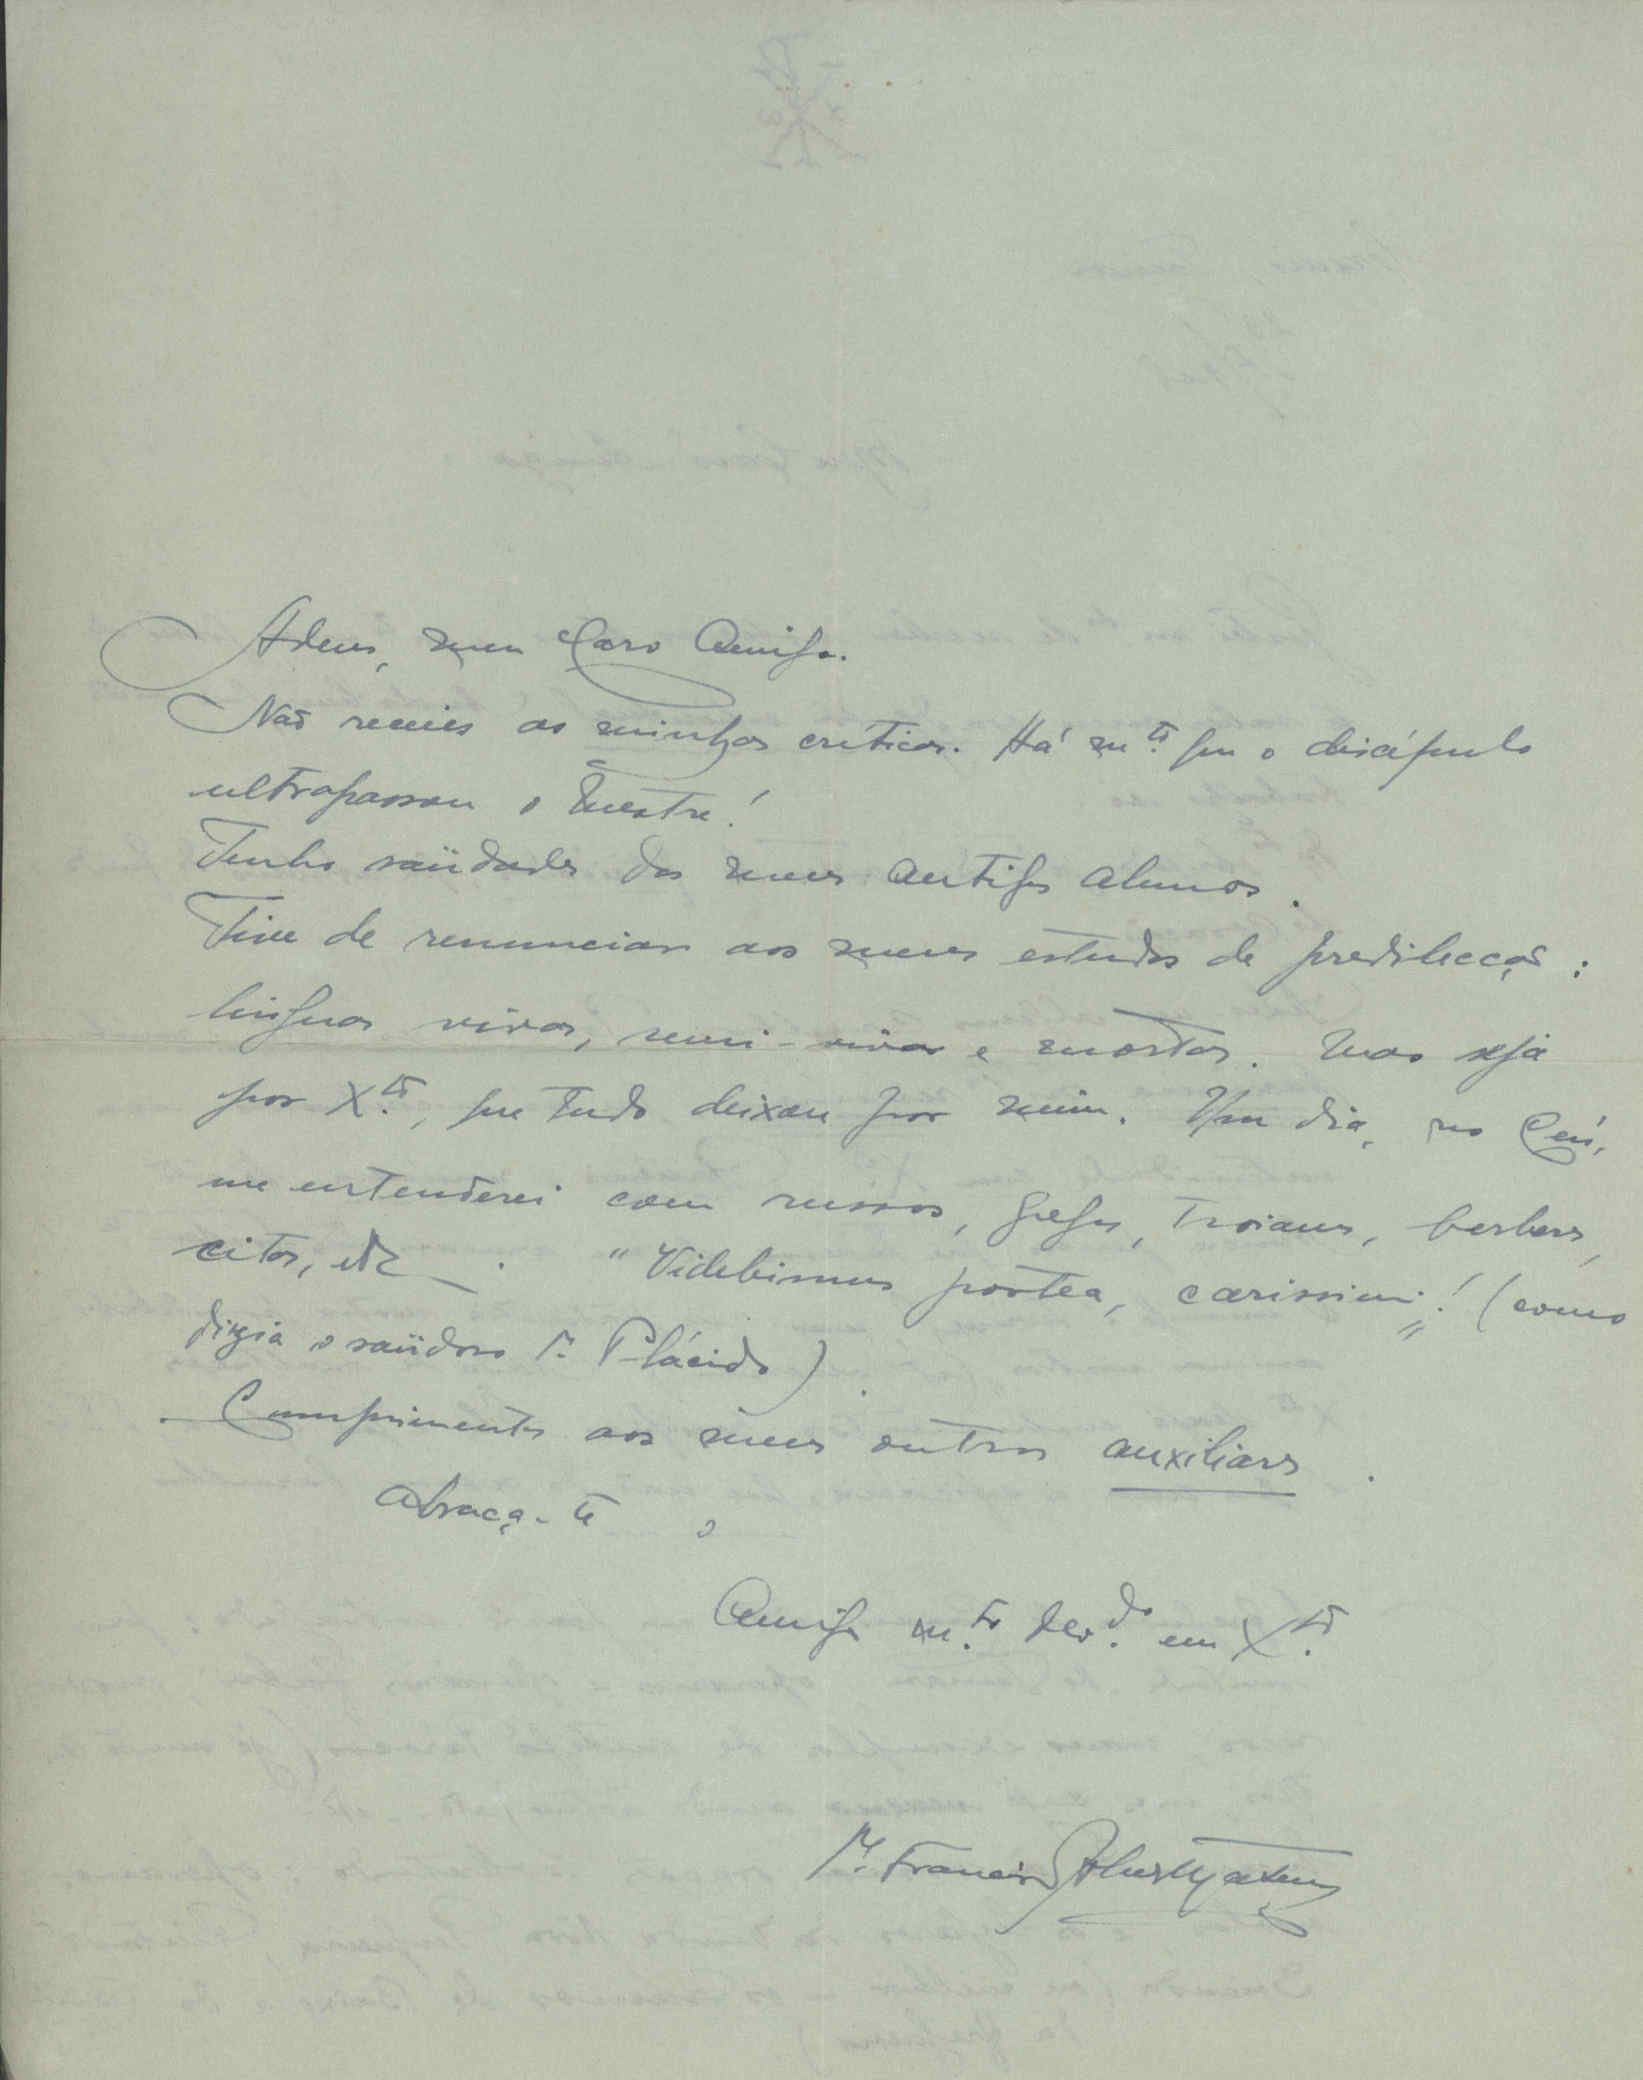 Adeus, meu Caro Amigo.
Não receies as minhas críticas. Há m.to que o discípulo
ultrapassou o Mestre!
Tenho saüdades dos meus antigos alunos.
Tive de renunciar aos meus estudos de predilecção:
línguas vivas, semi-vivas e mortas. Mas seja
por X.to, que tudo deixou por mim. Um dia, no Céu,
me entenderei com russos, gregos, troianos, berberes,
citas, etc. "Videbimus postea, carissimi!" (como
dizia o saüdoso P. Plácido).
Cumprimentos aos meus outros auxiliares.
Abraça-te o
Amigo m.to dev.do em X.to
P. Francisco